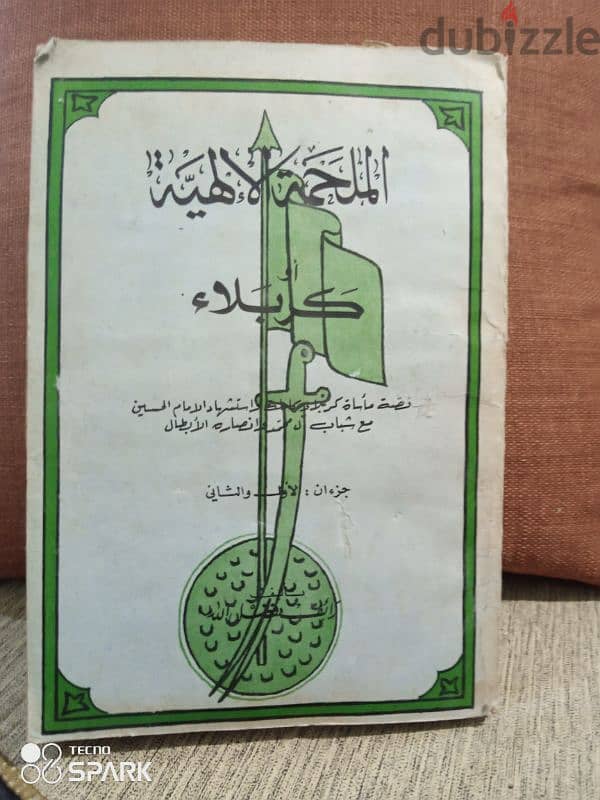 dubizzle
الملحمة الإلهيّة
أو
كربلاء
قصة مأساة كربلاء واستشهاد الامام الحسين
مع شباب آل محمّد وانصاره الأبطال
جزءان: الأول والثاني
بقلم
فضل الله
TECNO
SPARK